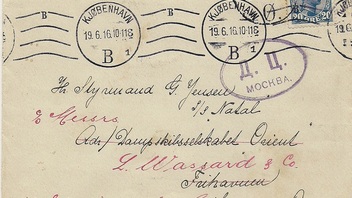 KJØBENHAVN KJØBENHAVN
19.6.16.10-11E 19.6.16.10-11E
B B B
1 1
20
Д. Ц.
МОСКВА.
Hr Styrmand G. Jensen
S/S Natal
E Messrs
Adr/ Dampskibsselskabet Orient
L. Wassard & Co.
Frihavnen